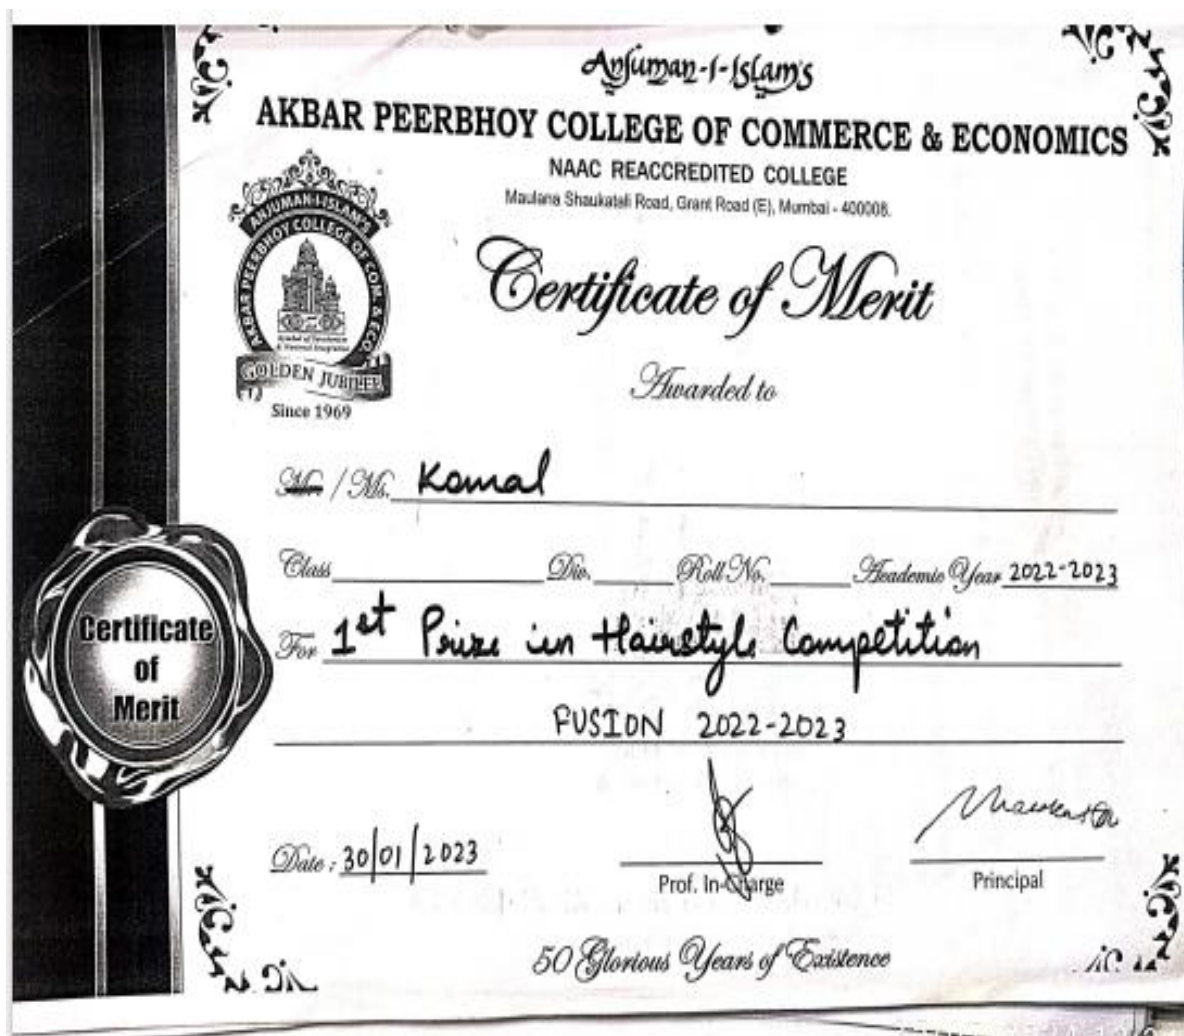 Anjuman-I-Islam's
AKBAR PEERBHOY COLLEGE OF COMMERCE & ECONOMICS
NAAC REACCREDITED COLLEGE
Maulana Shaukatali Road, Grant Road (E), Mumbai - 400008.
ANJUMAN-I-ISLAM'S
AKBAR PEERBHOY COLLEGE OF COM. & ECO.
Symbol of Secularism
& National Integration
GOLDEN JUBILEE
Since 1969
Certificate of Merit
Awarded to
Mr. / Ms. Komal
Class Div. Roll No. Academic Year 2022-2023
For 1st Prize in Hairstyle Competition
FUSION 2022-2023
Certificate
of
Merit
Date : 30/01/2023
Prof. In-Charge
Principal
50 Glorious Years of Existence